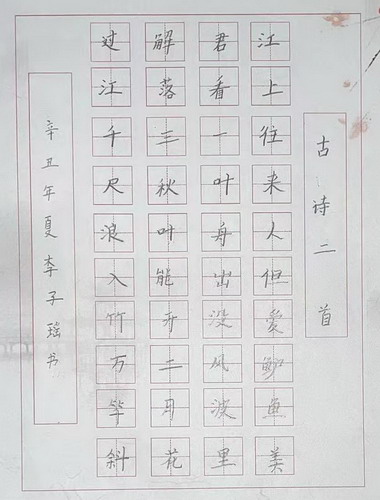 古诗二首
江上往来人但爱鲈鱼美
君看一叶舟出没风波里
解落三秋叶能开二月花
过江千尺浪入竹万竿斜
辛丑年夏李子瑶书